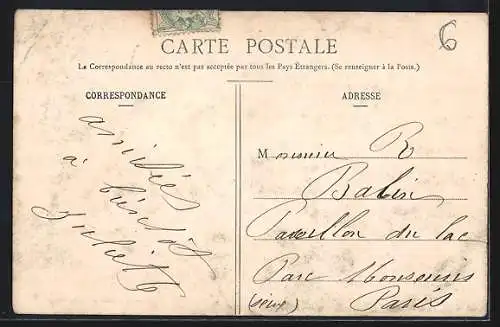 6
CARTE POSTALE
La Correspondance au recto n'est pas acceptée par tous les Pays Étrangers. (Se renseigner à la Poste.)
CORRESPONDANCE
amitiés
à bientôt
Juliette
ADRESSE
Monsieur R
Babin
Pavillon du lac
Parc Monsouris
Paris